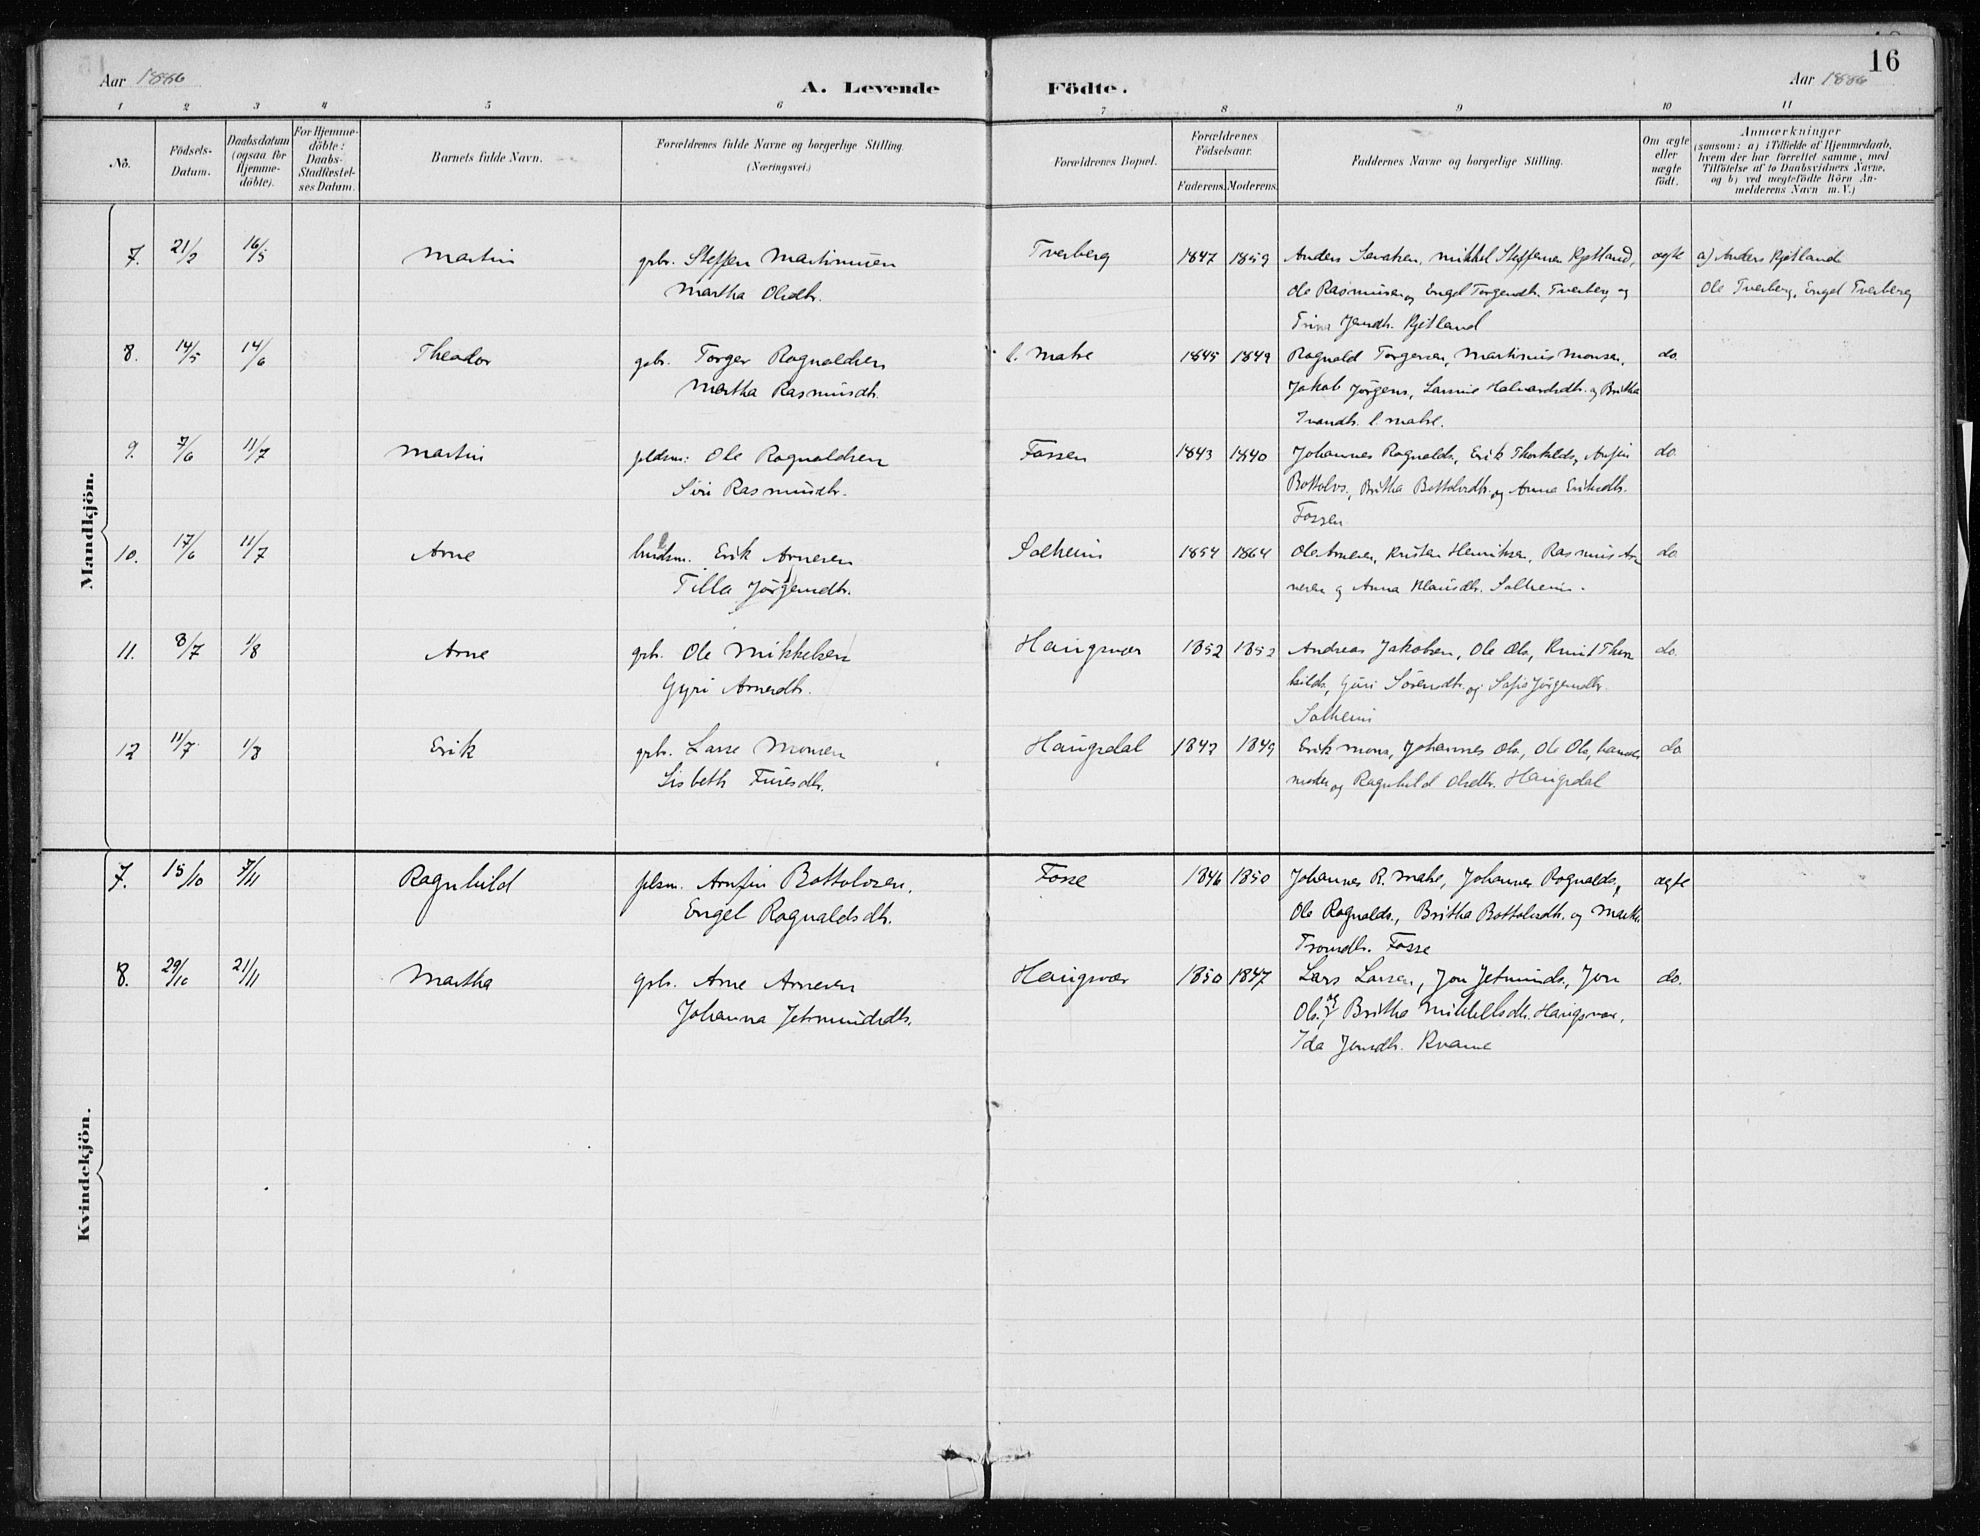 Aar 1886
A. Levende
Födte.
Aar 1886
16
1 2 3 4 5 6 7 8 9 10 11
No.
Födsels-
Datum.
Daabsdatum
(ogsaa for
Hjemme-
döbte).
For Hjemme-
döbte:
Daabs-
Stadfæstel-
ses Datum.
Barnets fulde Navn.
Forældrenes fulde Navne og borgerlige Stilling.
(Næringsvei.)
Forældrenes Bopæl.
Forældrenes
Födselsaar.
Faderens. Moderens.
Faddernes Navne og borgerlige Stilling.
Om ægte
eller
uægte
födt.
Anmærkninger
(saasom: a) i Tilfælde af Hjemmedaab,
hvem der har forrettet samme, med
Tilföielse af to Daabsvidners Navne,
og b) ved uægtefödte Börn An-
melderens Navn m. V.)
Mandkjön.
7. 21/2 16/5 Martin gbr. Steffen Martinusen Tverberg 1847 1859 Anders Mikkel Steffensen Kjetland, ægte a) Anders Kjetland
Martha Olsdtr. Ole Rasmusen og Engel Torgersdtr. Tverberg og Ole Tverberg, Engel Tverberg
Trina Jensdtr. Kjetland
8. 14/5 14/6 Theodor gbr. Torger Rognaldsen l. Matre 1845 1849 Rognald Torgersen, Martinus Monsen, do.
Martha Rasmusdtr. Jakob Jørgens, Halvardsdtr. og Britha
Ivarsdtr. l. Matre.
9. 7/6 11/7 Martin pldsm: Ole Rognaldsen Fossen 1843 1840 Johannes Rognalds., Erik Thorkilds, Anfin do.
Siri Rasmusdtr. Bottolvs., Britha Bottolvsdtr. og Anna Eriksdtr.
Fossen
10. 17/6 11/7 Arne husm. Erik Arnesen Solheim 1854 1864 Ole Arnesen, Kristen Henriksen, Rasmus Ar- do.
Tilla Jørgensdtr. nesen og Anna Klausdtr. Solheim.
11. 8/7 1/8 Arne gbr. Ole Mikkelsen Haugsvær 1852 1852 Andreas Jakobsen, Ole Ols., Knut Thor- do.
Gyri Arnesdtr. kilds, Guri Sørensdtr. og Sofie Jørgensdtr.
Solheim
12 11/7 1/8 Erik gbr. Lasse Monsen Haugsdal 1842 1849 Erik Mons., Johannes Ols., Ole Ols., hans do.
Lisbeth Furesdtr. moder og Ragnhild Olsdtr. Haugsdal
Kvindekjön.
7. 15/10 7/11 Ragnhild plsm. Arnfin Bottolvsen, Fosse 1846 1850 Johannes R. Matre, Johannes Rognalds., ægte
Engel Rognaldsdtr. Ole Rognalds., Britha Bottolvsdtr. og Martha
Tromsdtr. Fosse
8. 29/10 21/11 Martha gbr. Arne Arnesen Haugsvær 1850 1847 Lars Larsen, Jon Jetmunds., Jon do.
Johanna Jetmundsdtr. Ols. og Britha Mikkelsdtr. Haugsvær,
Ida Jonsdtr. Kvame